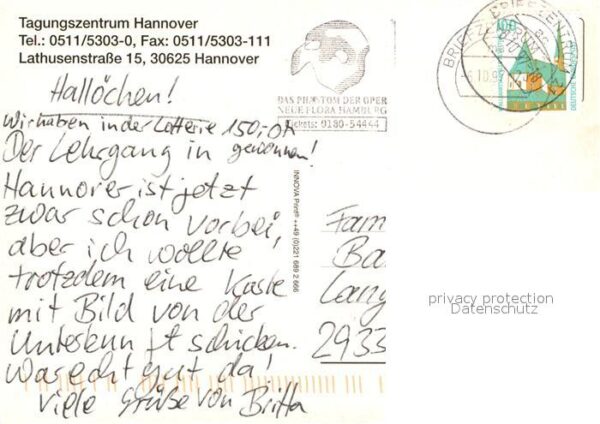 Tagungszentrum Hannover
Tel.: 0511/5303-0, Fax: 0511/5303-111
Lathusenstraße 15, 30625 Hannover
Hallöchen!
Wir haben in der Lotterie 150,- DM
gewonnen!
Der Lehrgang in
Hannover ist jetzt
zwar schon vorbei,
aber ich wollte
trotzdem eine Karte
mit Bild von der
Unterkunft schicken.
War echt gut da!
Viele Grüße von Britta
DAS PHANTOM DER OPER
NEUE FLORA HAMBURG
Tickets: 0180-54444
BRIEFZENTRUM
100
INNOVA Print® ++49 (0)221 689 2 666
Fam
Ba
Lang
2933
privacy protection
Datenschutz